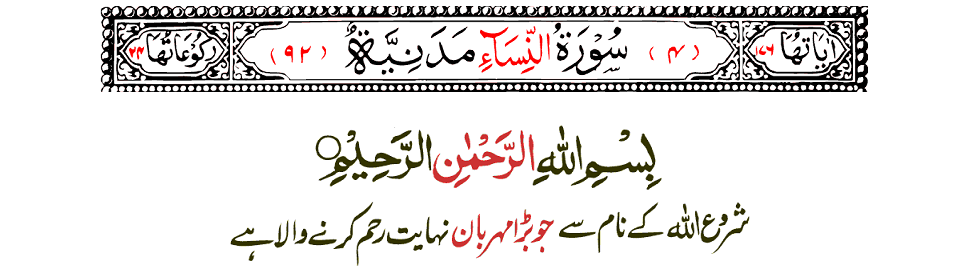 اٰیَاتُهَا ۱۷۶ (۴) سُوْرَةُ النِّسَآءِ مَدَنِیَّةٌ (۹۲) رُكُوْعَاتُهَا ۲۴
بِسْمِ اللّٰهِ الرَّحْمٰنِ الرَّحِیْمِ۝
شروع اللہ کے نام سے جو بڑا مہربان نہایت رحم کرنے والا ہے